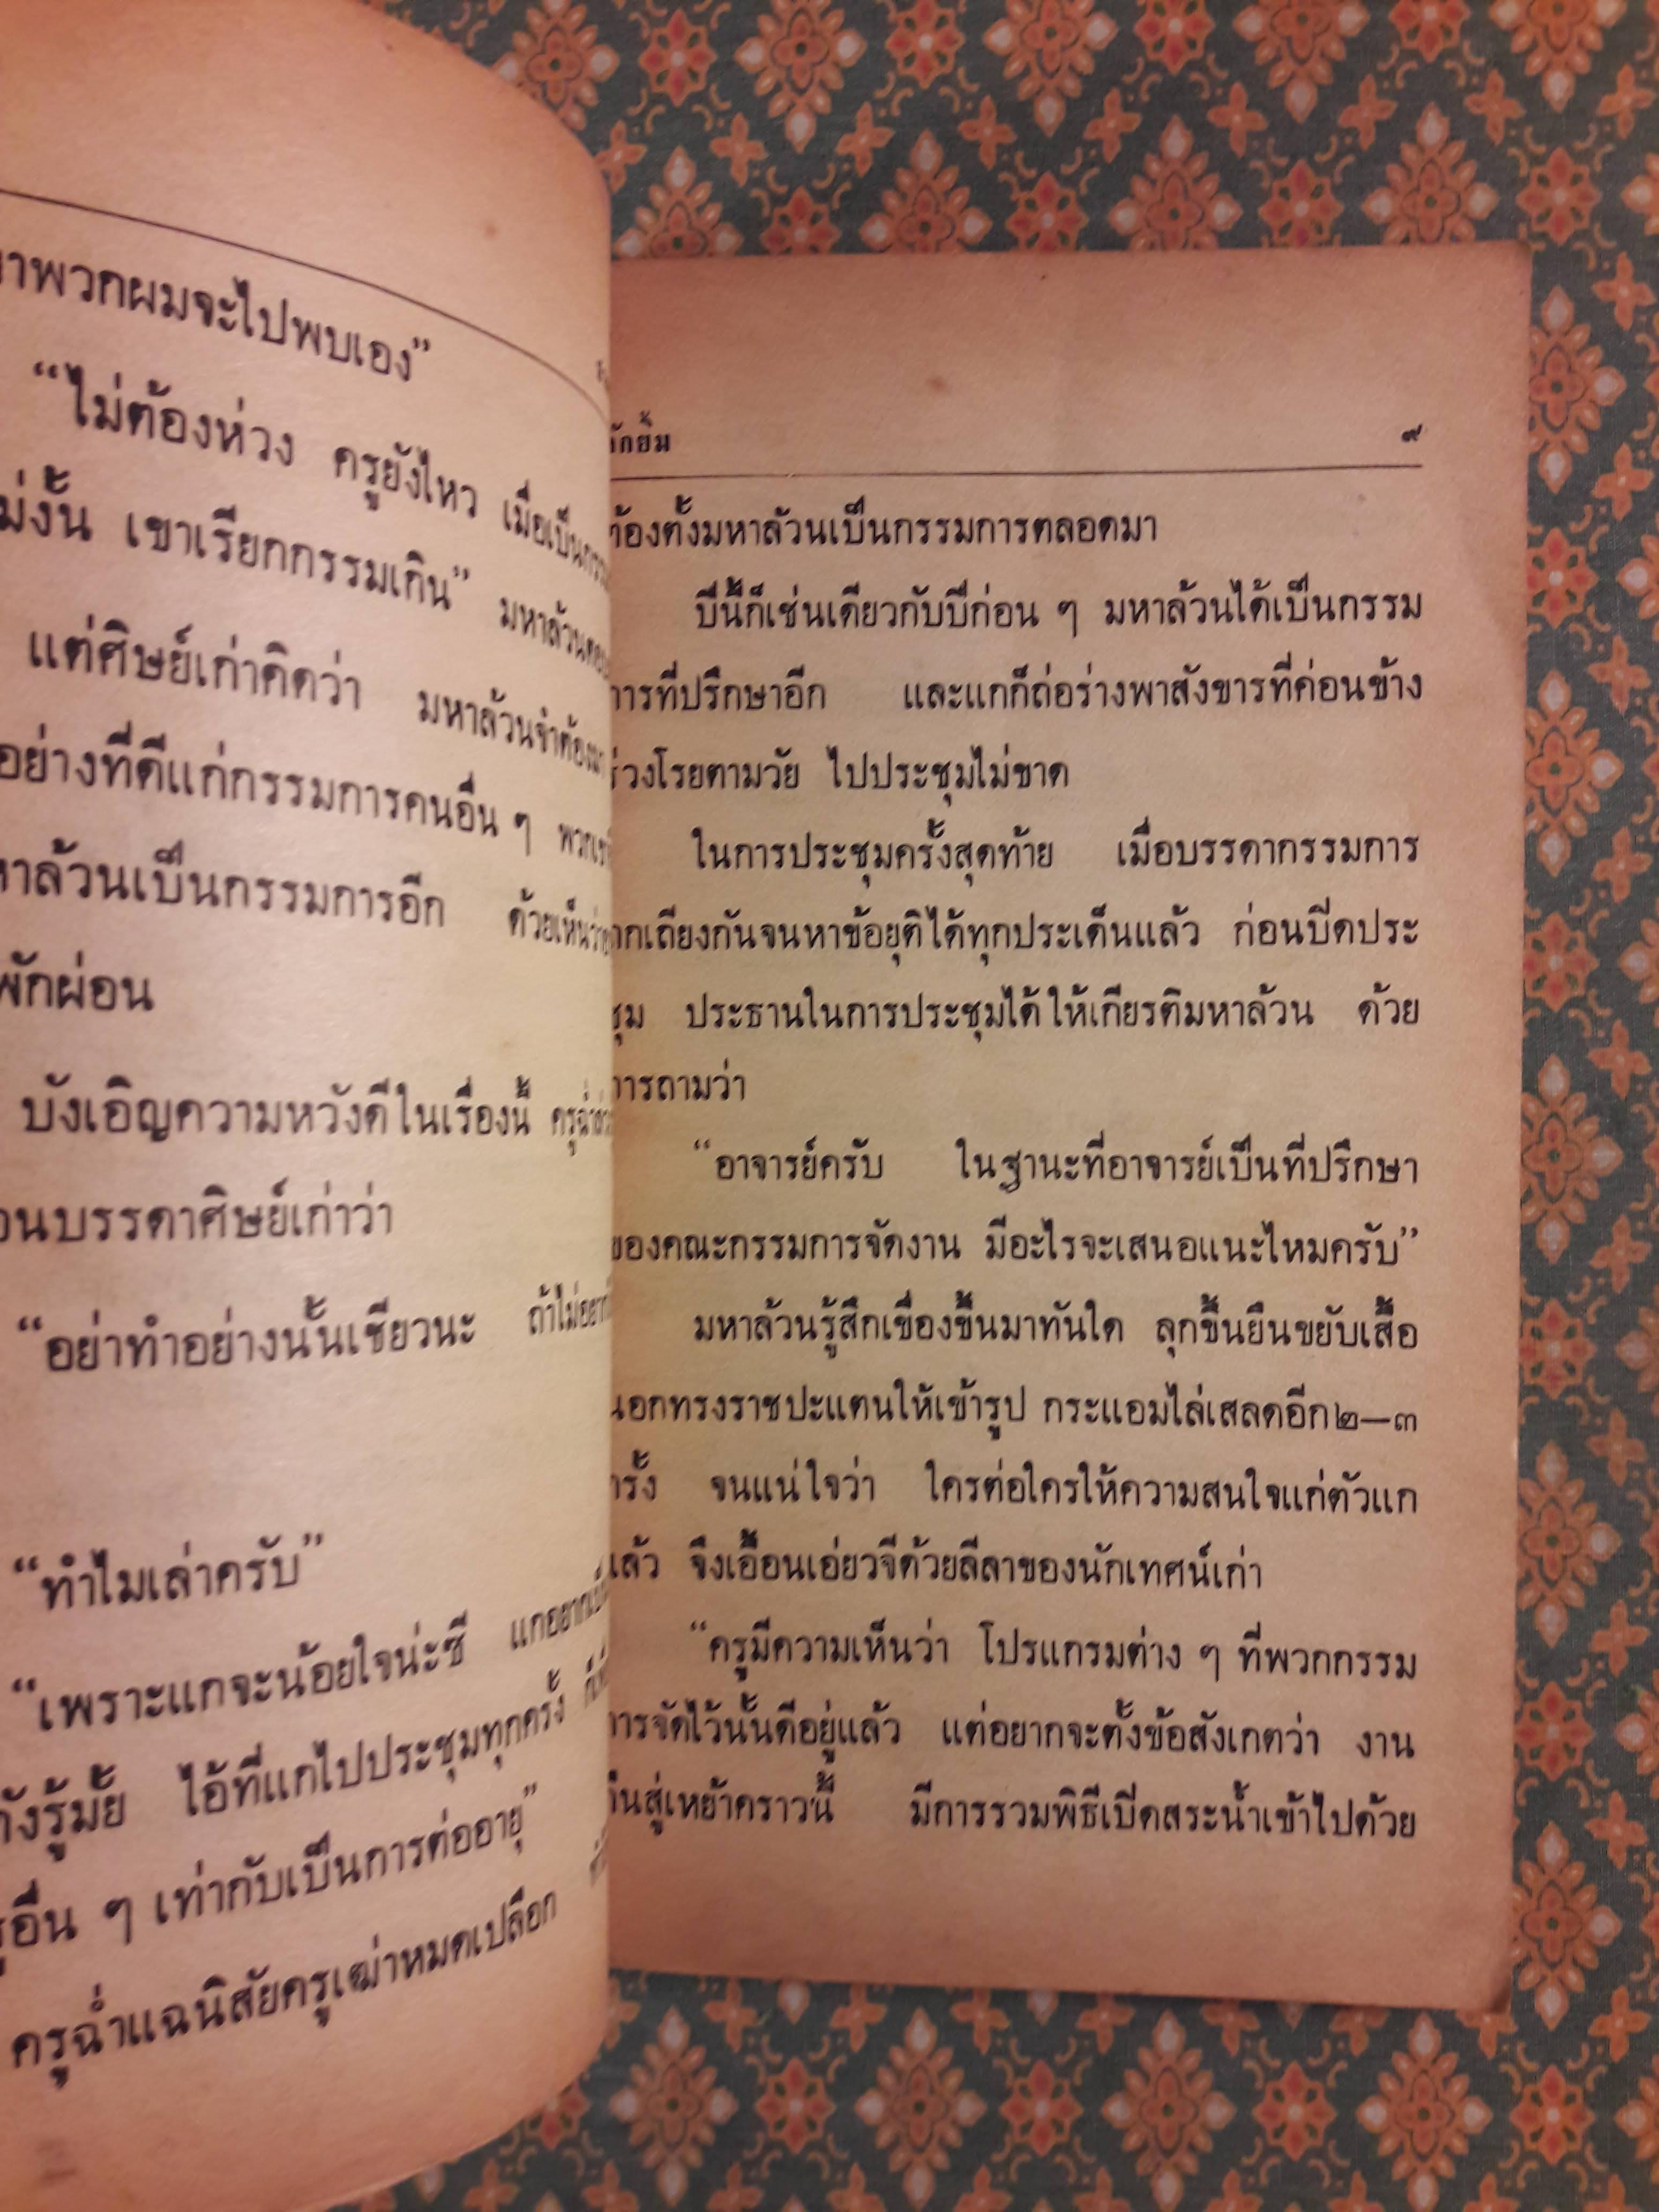 พวกผมจะไปพบเอง”
“ไม่ต้องห่วง ครูยังไหว เมื่อเป็น
เขาเรียกกรรมเกิน” มหาล้วน
แต่ศิษย์เก่าคิดว่า มหาล้วนจำต้อง
อย่างที่ดีแก่กรรมการคนอื่น ๆ
หาล้วนเป็นกรรมการอีก ด้วยเห็นว่า
พักผ่อน
บังเอิญความหวังดีในเรื่องนี้
บรรดาศิษย์เก่าว่า
“อย่าทำอย่างนั้นเชียวนะ ถ้าไม่อยาก
“ทำไมเล่าครับ”
“เพราะแกจะน้อยใจน่ะซี
รู้มั้ย ไอ้ที่แกไปประชุมทุกครั้ง
อื่น ๆ เท่ากับเป็นการต่ออายุ”
ครูฉ่ำแฉนิสัยครูเฒ่าหมดเปลือก
๙
ต้องตั้งมหาล้วนเป็นกรรมการตลอดมา
ปีนี้ก็เช่นเดียวกับปีก่อน ๆ มหาล้วนได้เป็นกรรม
การที่ปรึกษาอีก และแกก็ถ่อร่างพาสังขารที่ค่อนข้าง
ร่วงโรยตามวัย ไปประชุมไม่ขาด
ในการประชุมครั้งสุดท้าย เมื่อบรรดากรรมการ
ถกเถียงกันจนหาข้อยุติได้ทุกประเด็นแล้ว ก่อนปิดประ
ชุม ประธานในการประชุมได้ให้เกียรติมหาล้วน ด้วย
การถามว่า
“อาจารย์ครับ ในฐานะที่อาจารย์เป็นที่ปรึกษา
ของคณะกรรมการจัดงาน มีอะไรจะเสนอแนะไหมครับ”
มหาล้วนรู้สึกเขื่องขึ้นมาทันใด ลุกขึ้นยืนขยับเสื้อ
นอกทรงราชปะแตนให้เข้ารูป กระแอมไล่เสลดอีก๒—๓
ครั้ง จนแน่ใจว่า ใครต่อใครให้ความสนใจแก่ตัวแก
แล้ว จึงเอื้อนเอ่ยวจีด้วยลีลาของนักเทศน์เก่า
“ครูมีความเห็นว่า โปรแกรมต่าง ๆ ที่พวกกรรม
การจัดไว้นั้นดีอยู่แล้ว แต่อยากจะตั้งข้อสังเกตว่า งาน
คืนสู่เหย้าคราวนี้ มีการรวมพิธีเปิดสระน้ำเข้าไปด้วย